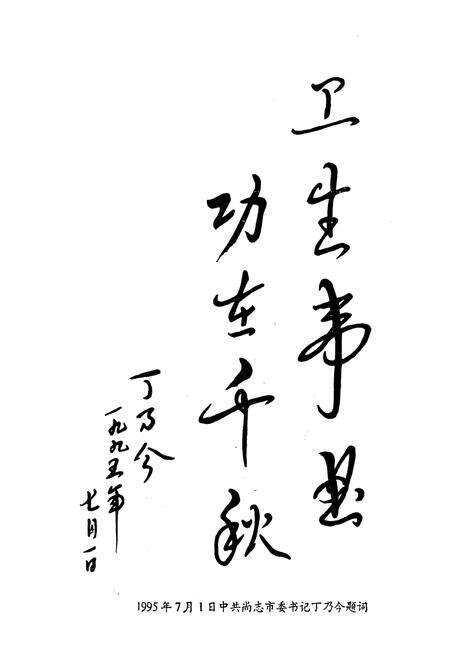 卫生事业
功在千秋
丁乃今
一九九五年
七月一日
1995年7月1日中共尚志市委书记丁乃今题词